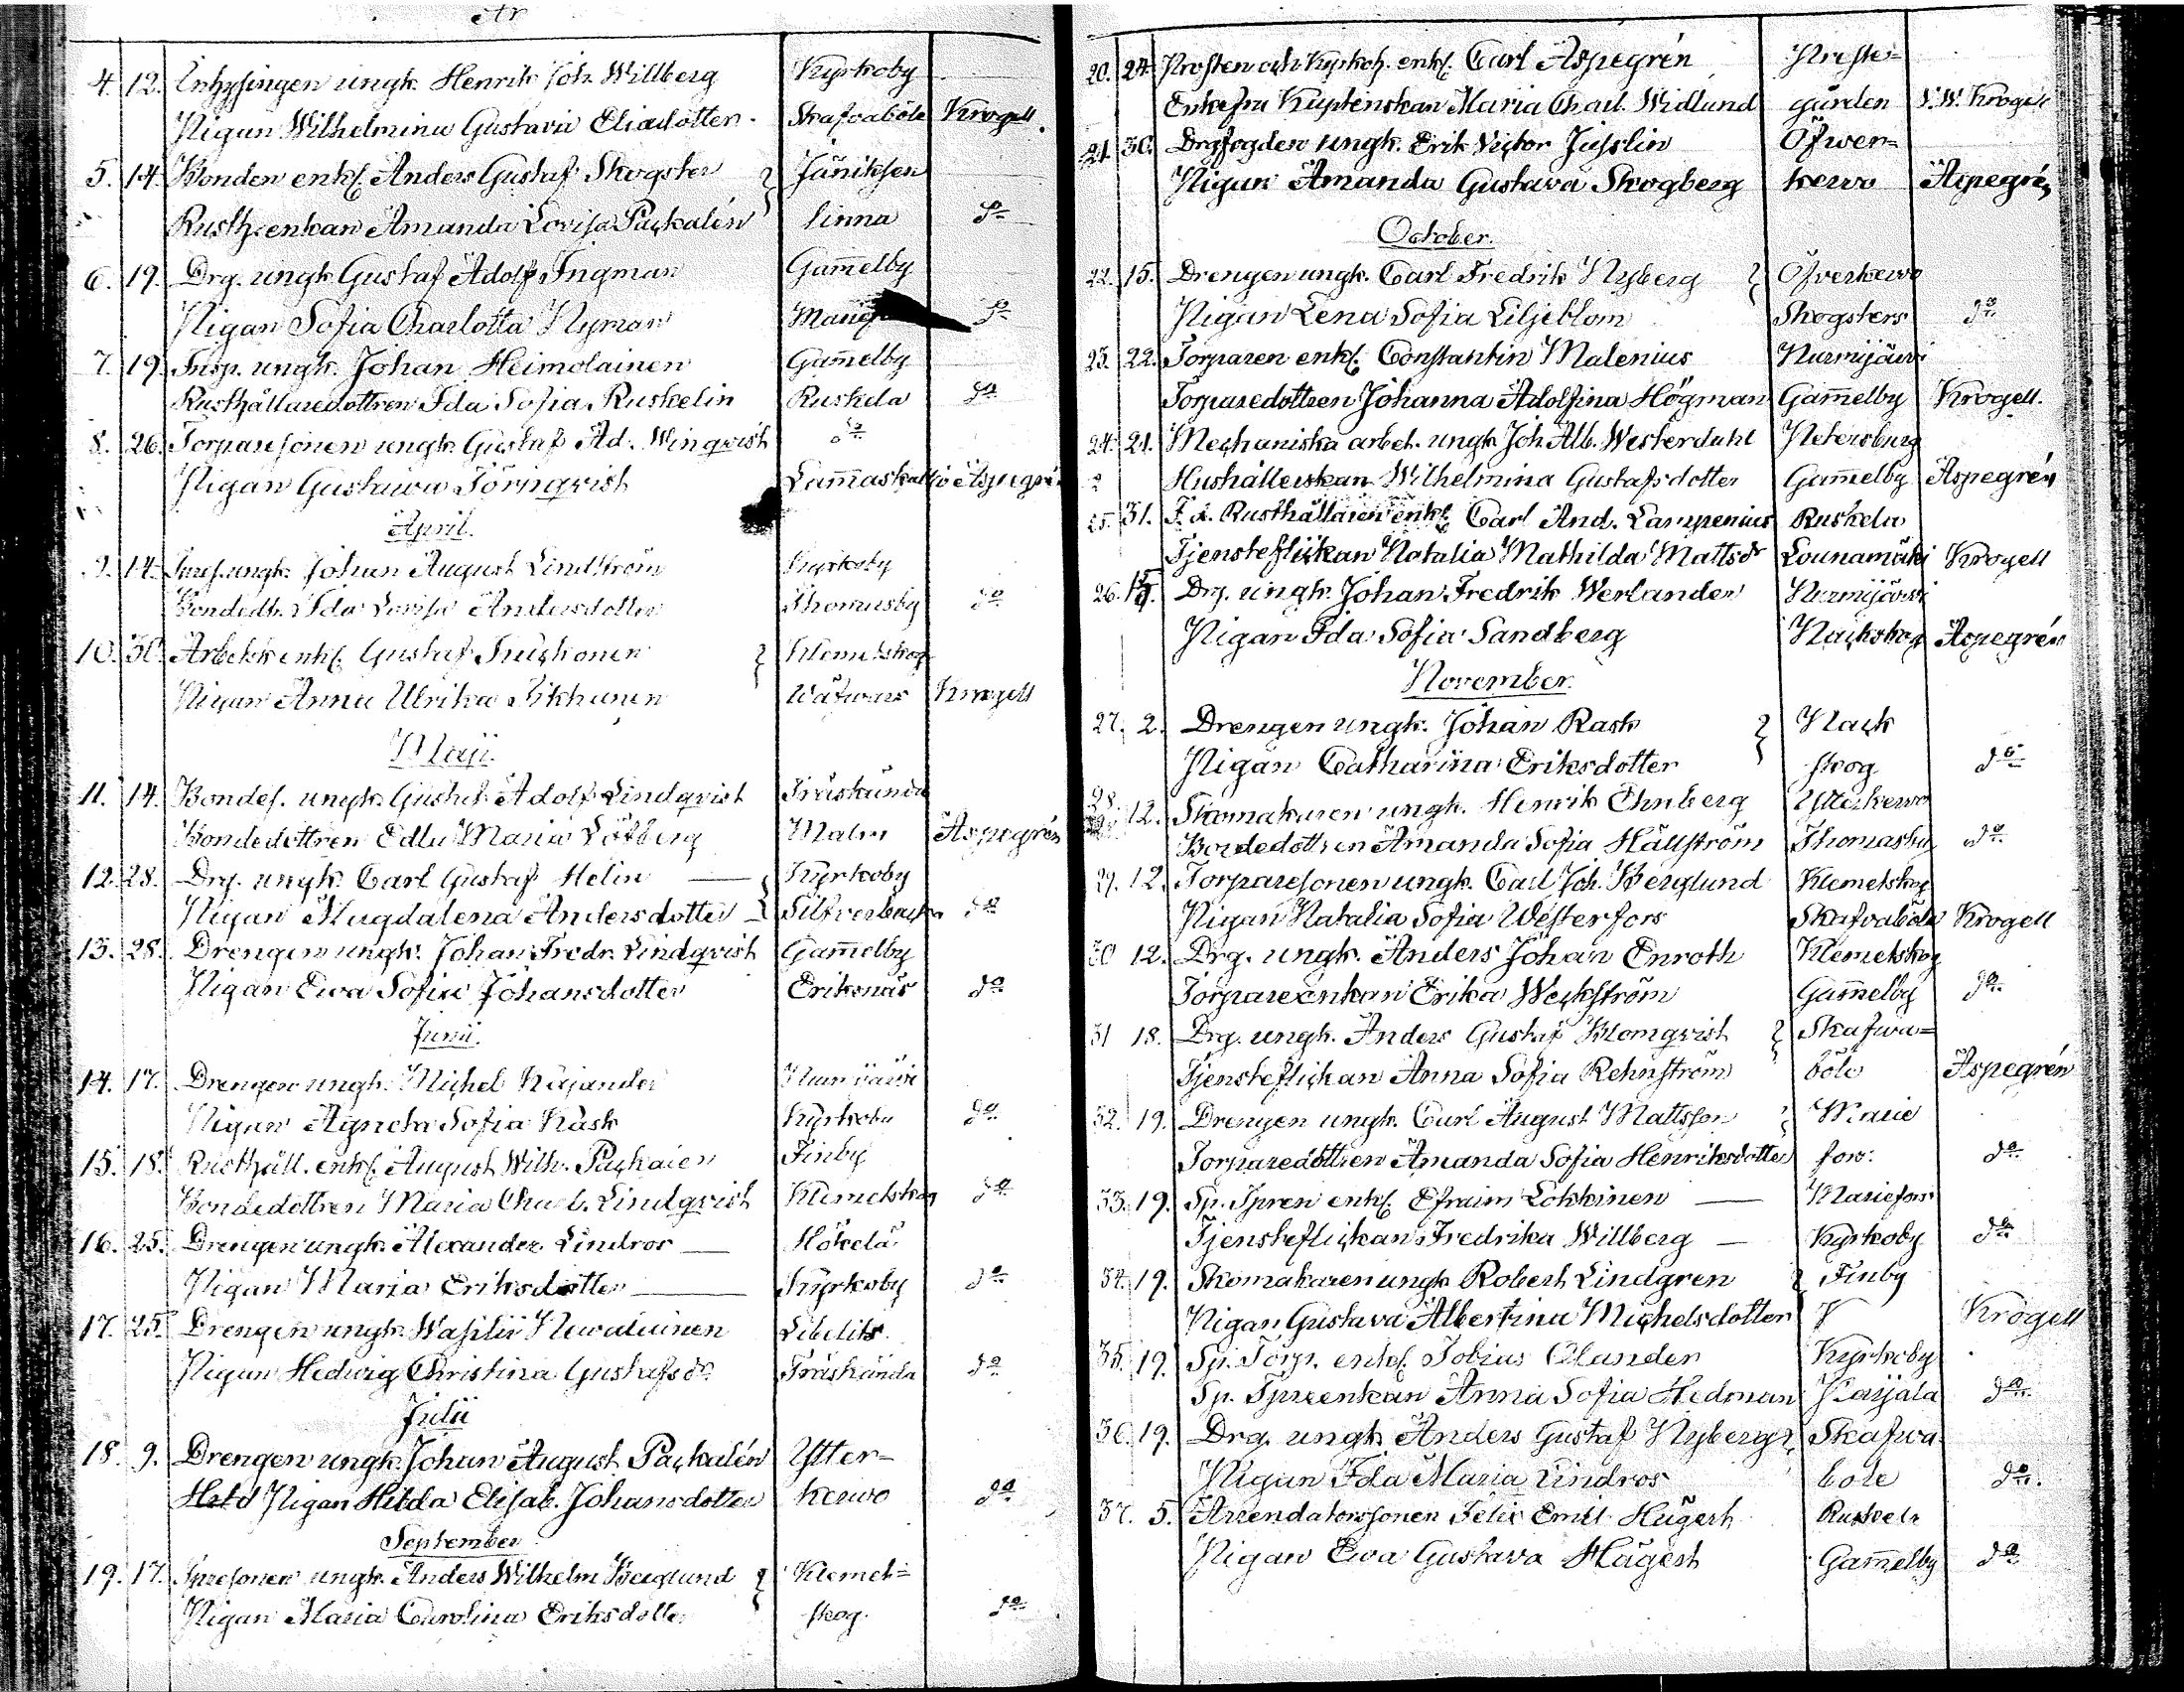 År
4. 12. Inhysingen ungk. Henrik Joh. Willberg Kyrkoby
Pigan Wilhelmina Gustava Eliædotter Skafvaböle Krogell
5. 14. Bonden enkl. Anders Gustaf Skogster Jäniksen
Rusth. enkan Amanda Lovisa Packalén linna do
6. 19. Drg. ungk. Gustaf Adolf Ingman Gam̅elby
Pigan Sofia Charlotta Nyman do
7. 19. Insp. ungk. Johan Heimolainen Gam̅elby
Rusthållaredottren Ida Sofia Ruskelin Ruskela do
8. 26. Torparesonen ungk. Gustaf Ad. Winqvist do
Pigan Gustawa Törnqvist Lam̅askallio Aspegrén
April.
9. 14. ungk. Johan August Lindström Kyrkoby
Bondedtr. Ida Lovisa Andersdotter Thomasby do
10. 30. Arbekk. enkl. Gustaf Klemetskog
Pigan Anna Ulrika Pikkanen Krogell
Maji.
11. 14. Bondes. ungk. Gustaf Adolf Lindqvist Träskända
Bondedottren Edla Maria Löfberg Malm Aspegrén
12. 28. Drg. ungk. Carl Gustaf Helin Kyrkoby
Pigan Magdalena Andersdotter Silfverbacka do
13. 28. Drengen ungk. Johan Fredr. Lindqvist Gam̅elby
Pigan Ewa Sofia Johansdotter Eriksnäs do
Junii.
14. 17. Drengen ungk. Michel Kajander Nurmijärvi
Pigan Agneta Sofia Rask Kyrkoby do
15. 18. Rusthåll. enkl. August Wilh. Packalen Finby
Bondedottren Maria Charl. Lindqvist Klemetskog do
16. 25. Drengen ungk. Alexander Lindros Hökelä
Pigan Maria Eriksdotter Kyrkoby do
17. 25. Drengen ungk. Wasilii Newalainen Libelits.
Pigan Hedwig Christina Gustafsdr Träskända do
Julii
18. 9. Drengen ungk. Johan August Packalén Ytter-
Pigan Hilda Elisab. Johansdotter kerwo do
September
19. 17. Tpresonen ungk. Anders Wilhelm Berglund Klemet=
Pigan Maria Carolina Eriksdotter skog. do
20. 24. Prosten och Kyrkoh. enkl. Carl Aspegrén Preste=
Enkefru Kaptenskan Maria Charl. Widlund gården V.W. Krogell
21. 30. Drgfogden ungk. Erik Victor Jusslin Öfwer=
Pigan Amanda Gustava Skogberg kerwo Aspegrén
October.
22. 15. Drengen ungk. Carl Fredrik Nyberg Öfverkerwo
Pigan Lena Sofia Liljeblom Skogsters do
23. 22. Torparen enkl. Constantin Malenius Nurmijärvi
Torparedottren Johanna Adolfina Högman Gam̅elby Krogell.
24. 21. Mechaniska arbet. ungk. Joh. Alb. Westerdahl Petersburg
Hushållerskan Wilhelmina Gustafsdotter Gam̅elby Aspegrén
25. 31. F.d. Rusthållaren enkl. Carl And. Lampenius Ruskela
Tjensteflickan Natalia Mathilda Mattsdr Lounamäki Krogell
26. 15. Drg. ungk. Johan Fredrik Werlander Nurmijärvi
Pigan Ida Sofia Sandberg Nackskog Aspegrén
November.
27. 2. Drengen ungk. Johan Rask Nack
Pigan Catharina Eriksdotter skog do
28. 12. Skomakaren ungk. Henrik Ehnberg Ytterkerwo
Bondedottren Amanda Sofia Hällström Thomasby do
29. 12. Torparesonen ungk. Carl Joh. Berglund Klemetskog
Pigan Natalia Sofia Westerfors Skafvaböle Krogell
30 12. Drg. ungk. Anders Johan Enroth Klemetskog
Torpareenkan Erika Weckström Gam̅elby do
31 18. Drg. ungk. Anders Gustaf Blomqvist Skafwa=
Tjensteflickan Anna Sofia Rehnström böle Aspegrén
32. 19. Drengen ungk. Carl August Mattsson Marie
Torparedottren Amanda Sofia Henriksdotter fors. do
33. 19. Sp. Tpren enkl. Efraim Lokkinen Mariefors
Tjensteflickan Fredrika Willberg Kyrkoby do
34. 19. Skomakaren ungk. Robert Lindgren Finby
Pigan Gustava Albertina Michelsdotter Krogell
35. 19. Sp. Torp. enkl. Tobias Olander Kyrkoby
Sp. Tpreenkan Anna Sofia Hedman Karjala do
36. 19. Drg. ungk. Anders Gustaf Nyberg Skafwa
Pigan Ida Maria Lindros böle do.
37. 5. Arrendatorssonen Felix Emil Hägert Ruskela
Pigan Ewa Gustava Hägest Gam̅elby do